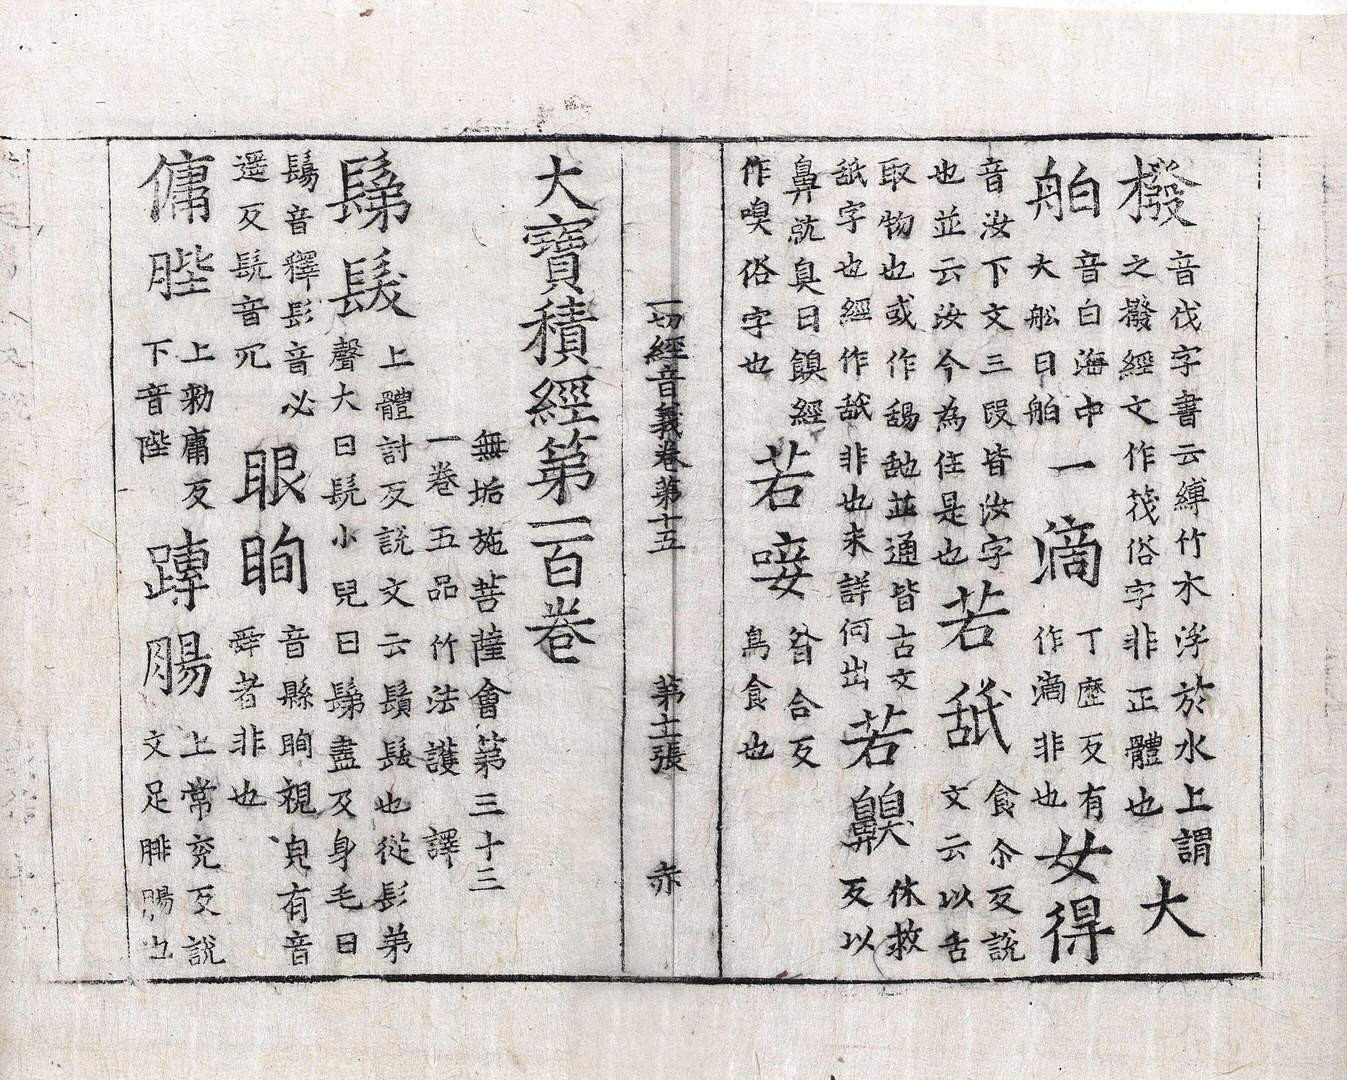 橃 音伐字書云縛竹木浮於水上謂
之橃經文作筏俗字非正體也 大
舶 音白海中
大舩曰舶 一滴 丁歷反有
作滴非也 女得
音汝下文三段皆汝字
也並云汝今為住是也 若舐 食尒反說
文云以舌
取物也或作舓䑛並通皆古文
舐字也經作䑛非也未詳何出 若齅 休救
反以
鼻就臭曰經
作嗅俗字也 若唼 昝合反
鳥食也
一切經音義卷第十五 第十一張 赤
大寶積經第一百卷
無垢施菩薩會第三十三
一卷五品竹法護 譯
鬀髮 上體討反說文云鬚髮也從髟弟
聲大曰髡小兒曰鬀盡及身毛曰
鬄音釋髟音必
遥反髡音兀 眼眴 音縣眴視皃有音
舜者非也
傭䏶 上勑庸反
下音陛 𨄔腸 上常兖反說
文足腓腸也